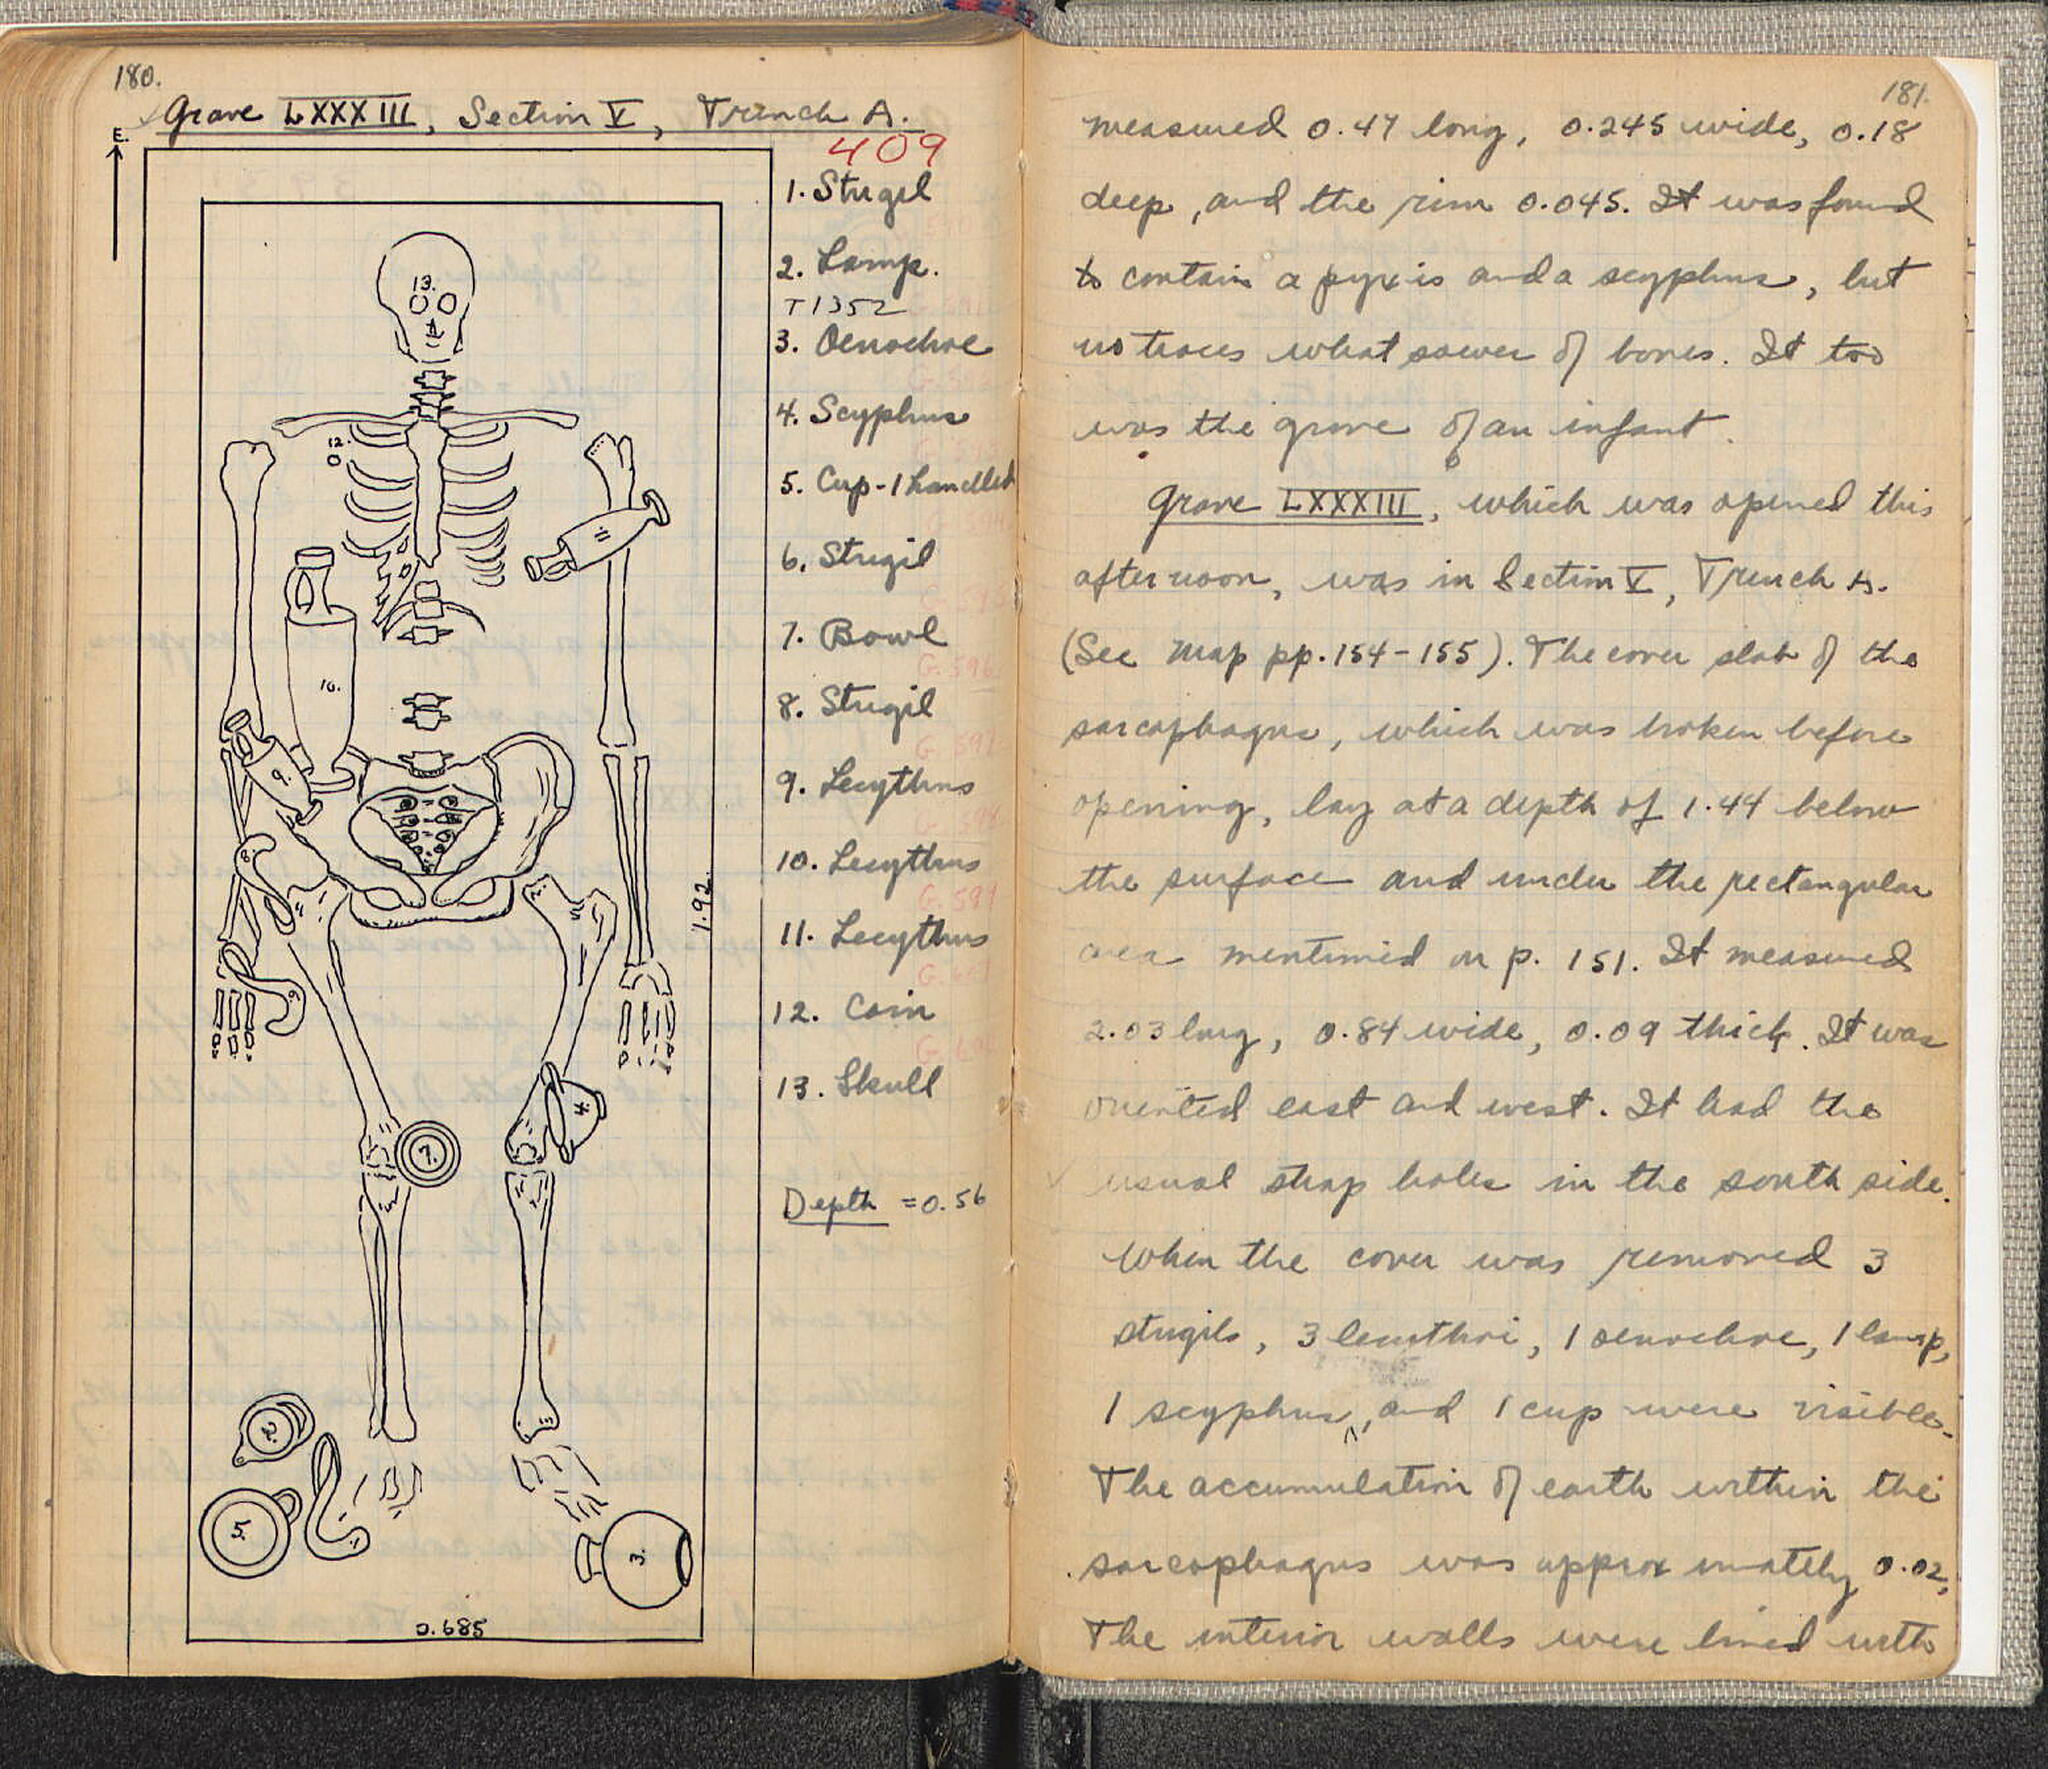 180.
Grave LXXXIII, Section V, Trench A.
E.
409
1. Strigil
2. Lamp.
T1352
3. Oenochoe
4. Scyphus
5. Cup-1 handled
6. Strigil
7. Bowl
8. Strigil
9. Lecythus
10. Lecythus
11. Lecythus
12. Coin
13. Skull
Depth = 0.56
13.
12.
11
10.
9.
8.
6
1.92
4.
7.
2.
5.
3.
0.685
181.
measured 0.47 long, 0.245 wide, 0.18
deep, and the rim 0.045. It was found
to contain a pyxis and a scyphus, but
no traces what soever of bones. It too
was the grave of an infant.
Grave LXXXIII, which was opened this
afternoon, was in Section V, Trench A.
(See Map pp. 154-155). The cover slab of the
sarcophagus, which was broken before
opening, lay at a depth of 1.44 below
the surface and under the rectangular
area mentioned on p. 151. It measured
2.03 long, 0.84 wide, 0.09 thick. It was
oriented east and west. It had the
usual strap holes in the south side.
When the cover was removed 3
strigils, 3 lecythoi, 1 oenochoe, 1 lamp,
1 scyphus, and 1 cup were visible.
The accumulation of earth within the
sarcophagus was approximately 0.02,
The interior walls were lined with